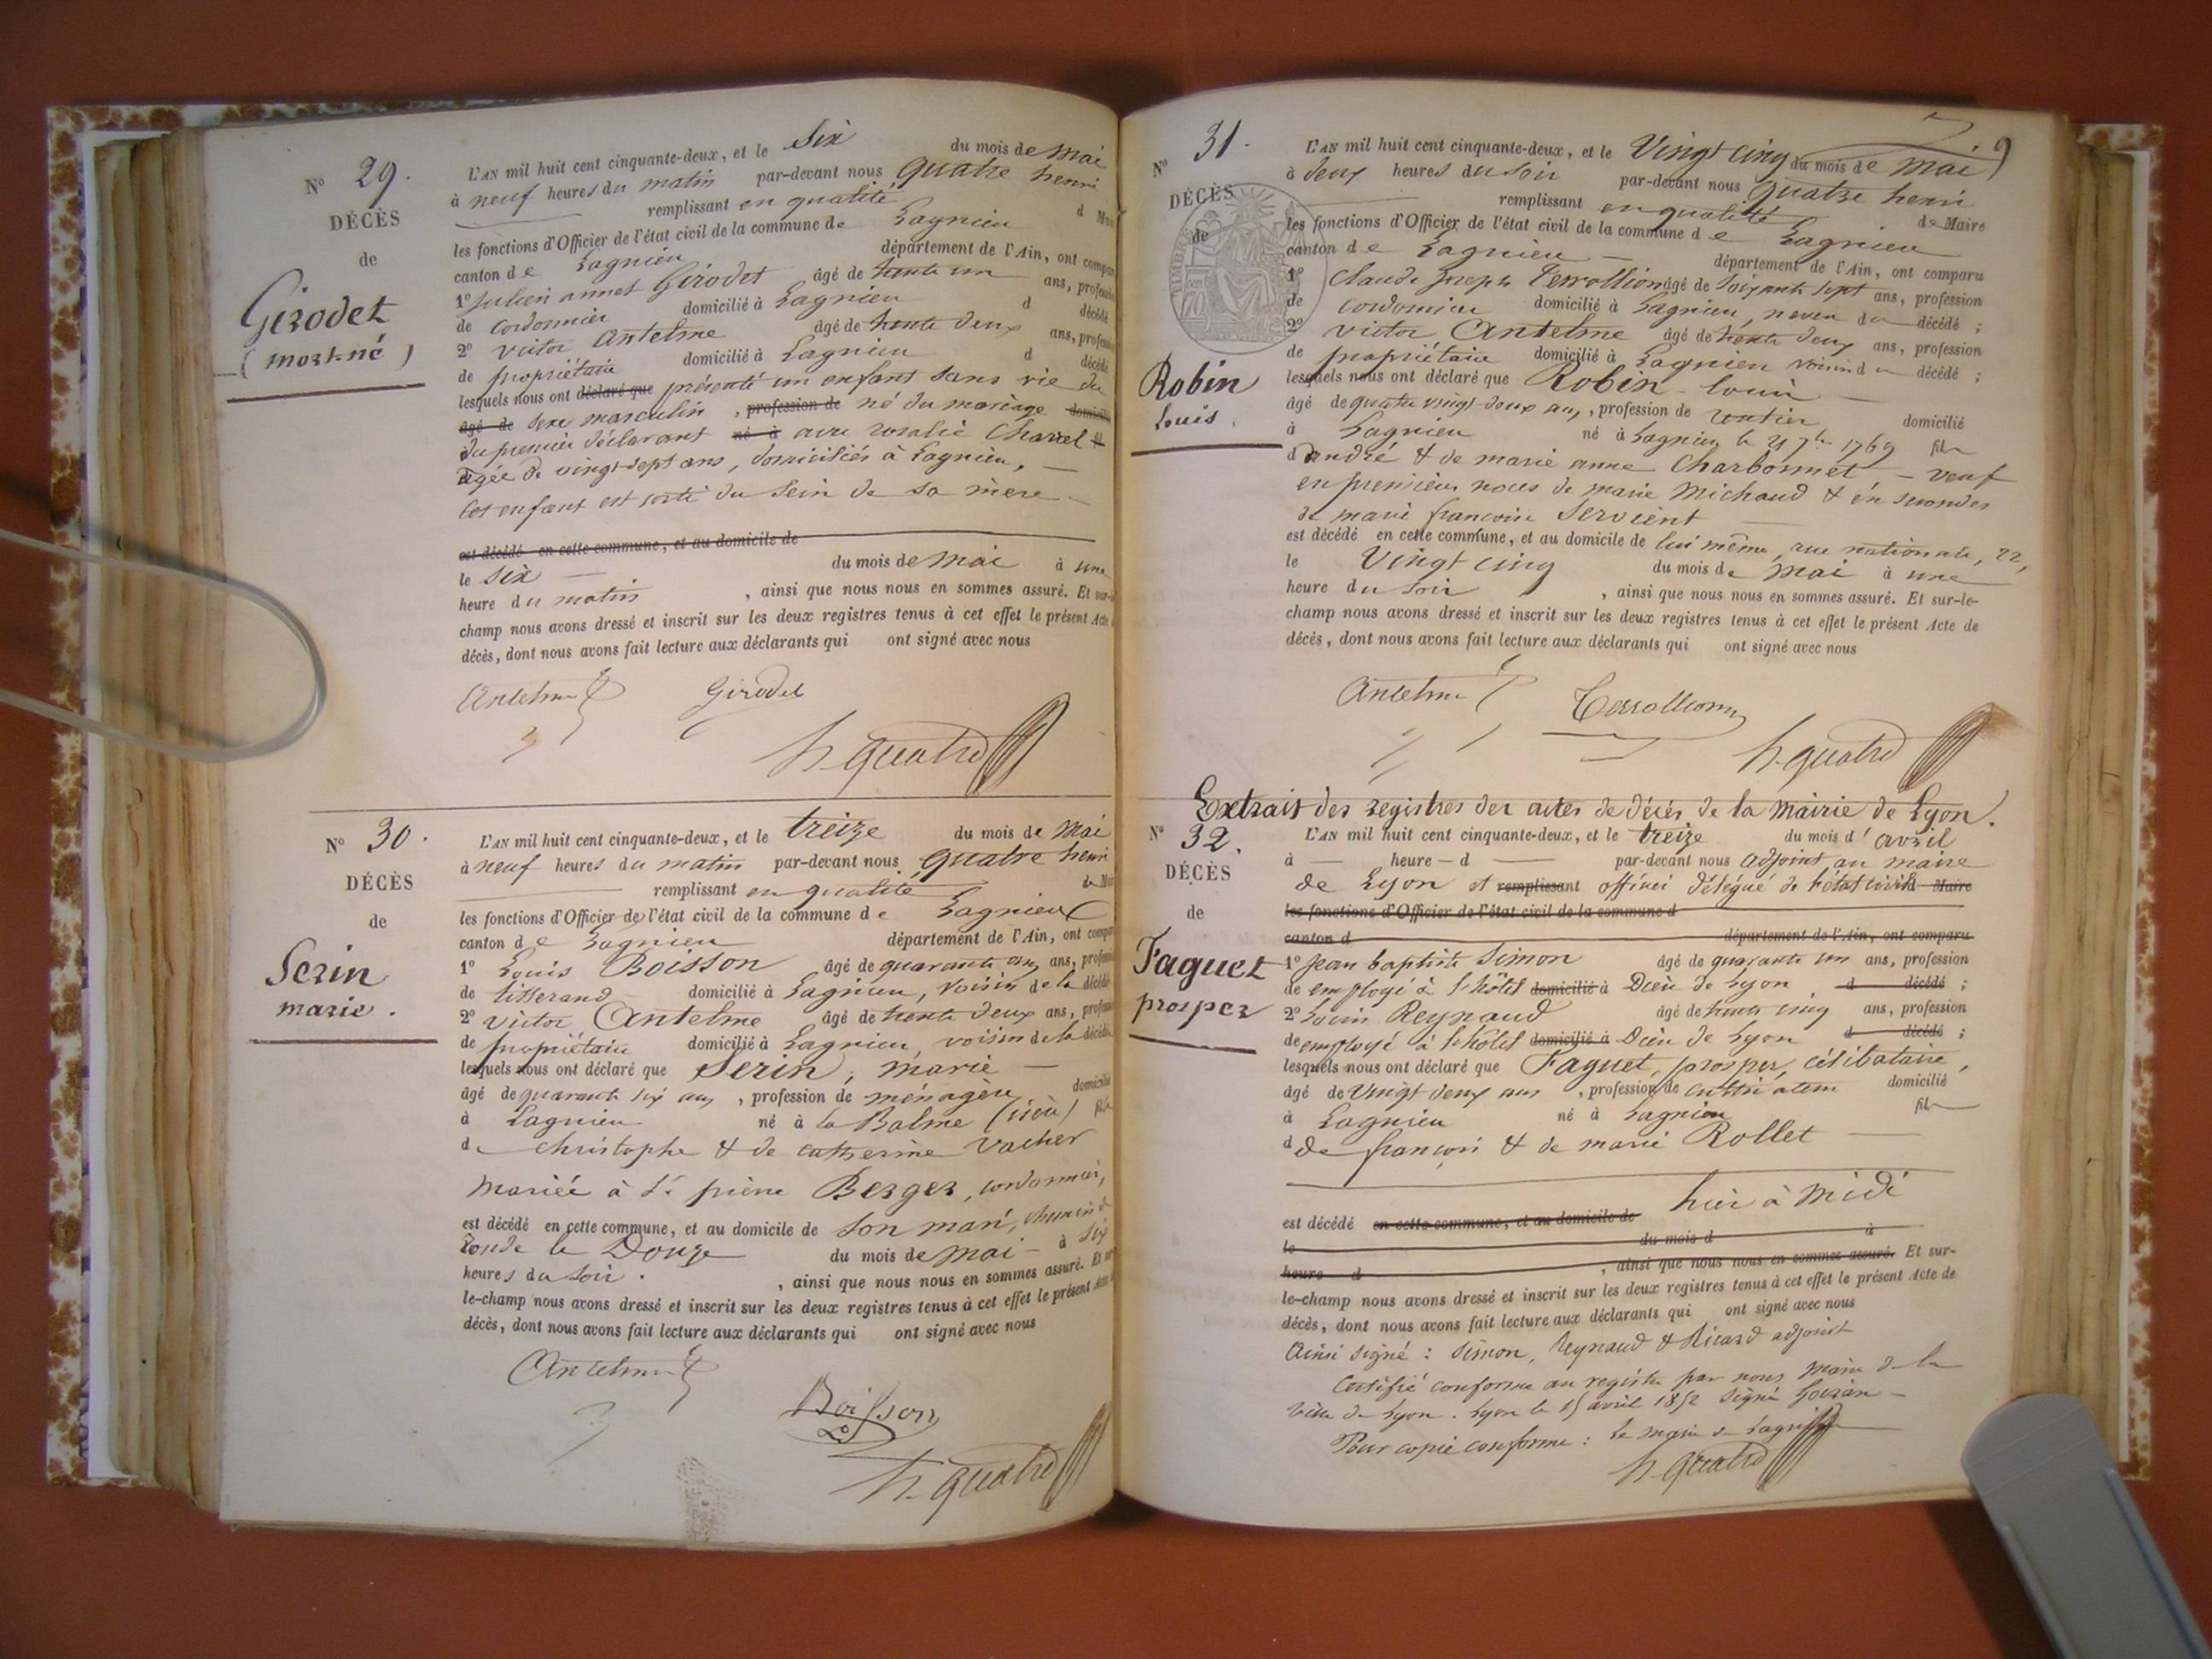 N° 29.
DÉCÈS
de
Girodet
(mort-né)
L'AN mil huit cent cinquante-deux, et le Six du mois de mai
à neuf heures du matin par-devant nous Quatre henri
remplissant en qualité d Maire
les fonctions d'Officier de l'état civil de la commune de Lagnieu
canton de Lagnieu département de l'Ain, ont comparu
1° Julien annet Girodet âgé de trente un ans, profession
de cordonnier domicilié à Lagnieu d décédé
2° victor Antelme âgé de trente deux ans, profession
de propriétaire domicilié à Lagnieu d décédé
lesquels nous ont déclaré que présenté un enfant sans vie du
âgé de sexe masculin, profession de né du mariage domicilié
du premier déclarant né à avec rosalie Charvel
âgée de vingt-sept ans, domiciliés à Lagnieu,
Cet enfant est sorti du Sein de sa mère
est décédé en cette commune, et au domicile de
le six du mois de mai à une
heure du matin, ainsi que nous nous en sommes assuré. Et sur-le
champ nous avons dressé et inscrit sur les deux registres tenus à cet effet le présent Acte
décès, dont nous avons fait lecture aux déclarants qui ont signé avec nous
Antelme Girodet
h. quatre
N° 30.
DÉCÈS
de
Serin
marie.
L'AN mil huit cent cinquante-deux, et le treize du mois de Mai
à neuf heures du matin par-devant nous Quatre henri
remplissant en qualité de Maire
les fonctions d'Officier de l'état civil de la commune de Lagnieu
canton de Lagnieu département de l'Ain, ont comparu
1° Louis Boisson âgé de quarante ans ans, profession
de tisserand domicilié à Lagnieu, voisin de la décédée
2° victor Antelme âgé de trente deux ans, profession
de propriétaire domicilié à Lagnieu, voisin de la décédée
lesquels nous ont déclaré que Serin, marie
âgé de quarante six ans, profession de ménagère domicilié
à Lagnieu né à la Balme (isère) fille
de christophe & de catherine Vacher
Mariée à Sr pierre Berger, cordonnier,
est décédé en cette commune, et au domicile de son mari, chemin de
ronde le Douze du mois de mai à six
heures du soir., ainsi que nous nous en sommes assuré. Et sur-
le-champ nous avons dressé et inscrit sur les deux registres tenus à cet effet le présent Acte
décès, dont nous avons fait lecture aux déclarants qui ont signé avec nous
Antelme
Boisson
h. quatre
9
N° 31.
DÉCÈS
de
Robin
Louis.
L'AN mil huit cent cinquante-deux, et le Vingt cinq du mois de mai
à deux heures du soir par-devant nous Quatre henri
remplissant en qualité de Maire
les fonctions d'Officier de l'état civil de la commune de Lagnieu
canton de Lagnieu département de l'Ain, ont comparu
1° Claude Joseph Terrollion âgé de soixante sept ans, profession
de cordonnier domicilié à Lagnieu, neveu du décédé;
2° victor Antelme âgé de trente deux ans, profession
de propriétaire domicilié à Lagnieu voisin du décédé;
lesquels nous ont déclaré que Robin louis
âgé de quatre vingt deux ans, profession de rentier domicilié
à Lagnieu né à Lagnieu le 21 7bre 1769 fils
d'andré & de marie anne Charbonnet veuf
en premières noces de marie Michaud & en secondes
de marie francoise Servient
est décédé en cette commune, et au domicile de lui même, rue nationale, 22,
le Vingt cinq du mois de mai à une
heure du soir, ainsi que nous nous en sommes assuré. Et sur-le-
champ nous avons dressé et inscrit sur les deux registres tenus à cet effet le présent Acte de
décès, dont nous avons fait lecture aux déclarants qui ont signé avec nous
Antelme Terrollion
h. quatre
Extrait des registres des actes de décès de la Mairie de Lyon.
N° 32.
DÉCÈS
de
Faguet
prosper
L'AN mil huit cent cinquante-deux, et le treize du mois d'avril
à heure d par-devant nous adjoint au maire
de Lyon et remplissant officier délégué de l'état civil d Maire
les fonctions d'Officier de l'état civil de la commune d
canton d département de l'Ain, ont comparu
1° Jean baptiste Simon âgé de quarante un ans, profession
de employé à l'hôtel domicilié à Dieu de Lyon d décédé;
2° Louis Reynaud âgé de trente cinq ans, profession
de employé à l'hôtel domicilié à Dieu de Lyon d décédé;
lesquels nous ont déclaré que Faguet, prosper, célibataire,
âgé de Vingt deux ans, profession de cultivateur domicilié
à Lagnieu né à Lagnieu fils
d de françois & de marie Rollet
est décédé en cette commune, et au domicile de hier à Midi
le du mois d à
heure d, ainsi que nous nous en sommes assuré. Et sur-
le-champ nous avons dressé et inscrit sur les deux registres tenus à cet effet le présent Acte de
décès, dont nous avons fait lecture aux déclarants qui ont signé avec nous
Ainsi signé: Simon, Reynaud & Ricard adjoint
Certifié conforme au registre par nous Maire de la
Ville de Lyon. Lyon le 15 avril 1852 Signé
Pour copie conforme: Le maire de Lagnieu
h. quatre